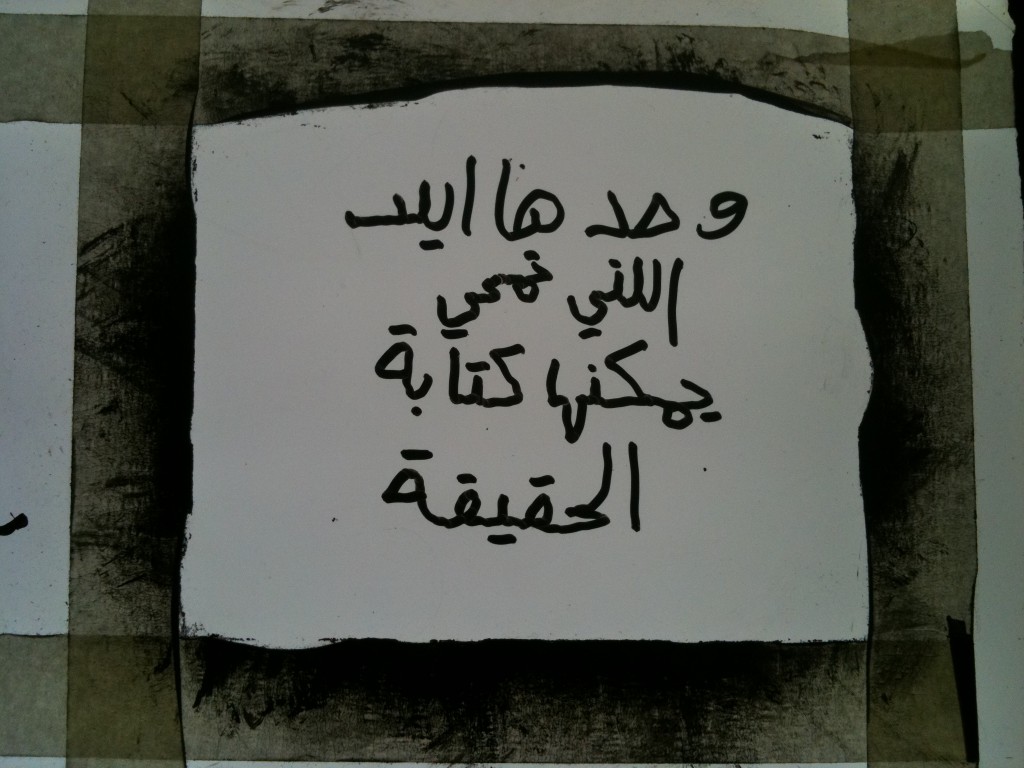 وحدها اليد
اللتي تمحي
يمكنها كتابة
الحقيقة